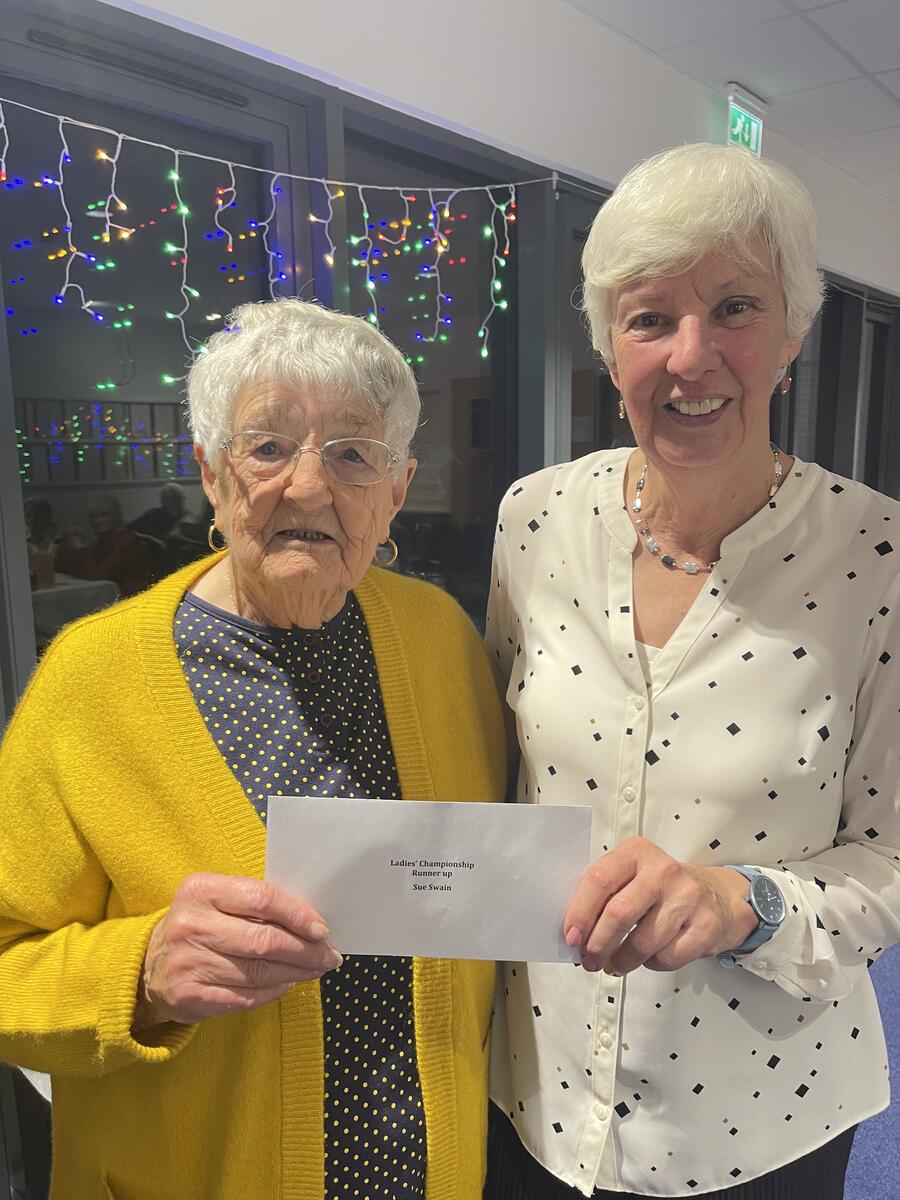 Ladies' Championship
Runner up
Sue Swain